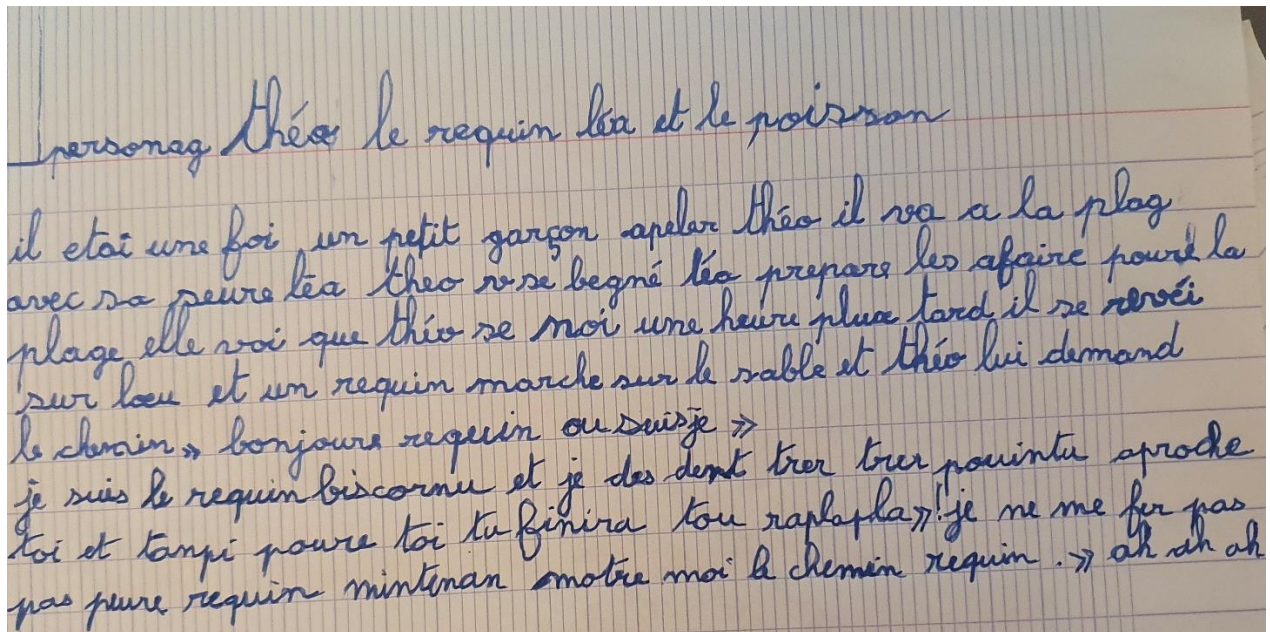 personag théo le requin léa et le poisson
il etai une foi un petit garçon apeler théo il va a la plag
avec sa seure léa theo v se begné léa prepare les afaire pour la
plage elle voi que théo se noi une heure plus tard il se revéi
sur leau et un requin marche sur le sable et théo lui demand
le chemin » bonjoure requin ou suisje »
je suis le requin biscornu et je des dent trer trer pouintu aproche
toi et tanpi poure toi tu finira tou raplapla »! je ne me fer pas
pas peure requin mintenan motre moi le chemin requin . » ah ah ah